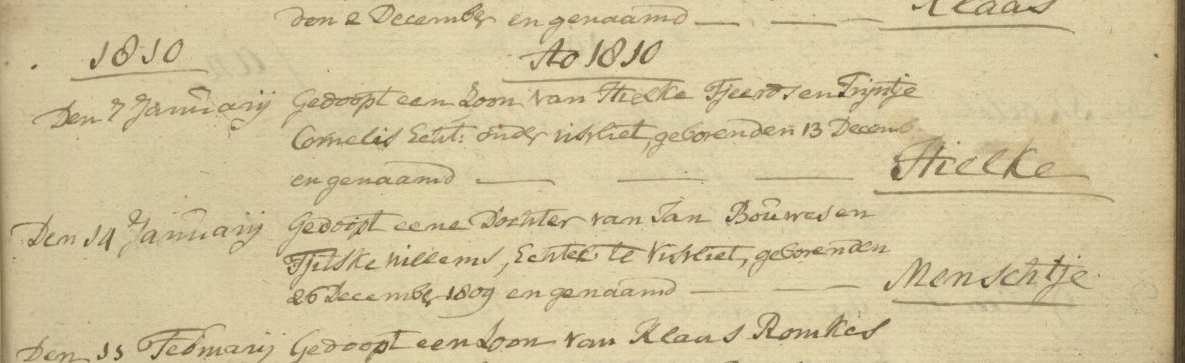 den 2 December en genaamd — — Klaas
1810 Ao 1810
Den 7 Januarij Gedoopt een Zoon van Hielke Tjeerds en Trijntje
Cornelis Echt: onder Visvliet, geboren den 13 Decemb.
en genaamd — — — Hielke
Den 14 Januarij Gedoopt eene Dochter van Jan Bouwes en
Tjitske Willems, Echtel: te Visvliet, geboren den
26 December 1809 en genaamd — — Menschtje
Den Februarij Gedoopt een Zoon van Klaas Romkes